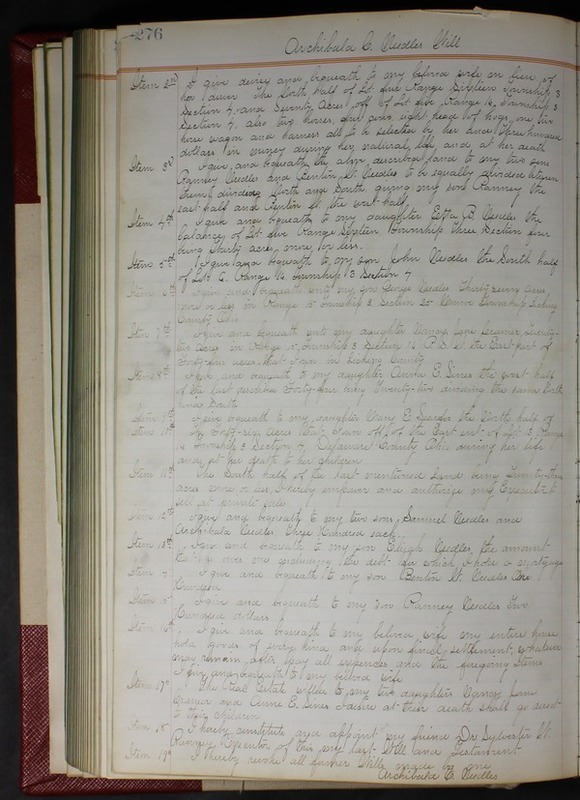 276
Archibald C. Needles Will
Item 2nd I give devise and bequeath to my beloved wife in lieu of
her dower The North half of Lot five Range Sixteen Township 3
Section 4. and Seventy Acres off of Lot five Range 16, Township 3
Section 4, also two horses, four cows, eight head of hogs, one two
horse wagon and harness all to be selected by her and Three hundred
dollars in money during her natural life and at her death
Item 3d I give and bequeath the above described land to my two sons
Ranney Needles and Benton St. Needles to be equally divided between
them, dividing North and South giving my son Ranney the
east half and Benton St. the west half.
Item 4th I give and bequeath to my daughter Etta B. Needles the
balance of Lot five Range Sixteen Township Three Section four
being thirty acres more or less.
Item 5th I give and bequeath to my son John Needles the South half
of Lot 6. Range 16 Township 3 Section 4
Item 6th I give and bequeath unto my son George Needles Thirty seven acres
more or less in Range 15 Township 3 Section 25 Township Licking
County Ohio
Item 7th I give and bequeath unto my daughter Nancy Jane Creamer Twenty-
two Acres in Range 15, Township 3 Section 16 the East part of
Forty-four acres that I own in Licking County
Item 8th I give and bequeath to my daughter Annie E. Sines the west half
of the last described Forty-four being Twenty-two dividing the same North
and South
Item 9th I give bequeath to my daughter Mary E. the North half of
Item 10th My Forty-six Acres that I own off of the East end of Lot 3 Range
16 Township 3 Section 4, Delaware County Ohio during her life
and at her death to her children
Item 11th The South half of the last mentioned Land being Twenty-three
acres more or less, I hereby empower and authorize my Executor to
sell at private sale
Item 12th I give and bequeath to my two sons, Samuel Needles and
Archibald Needles Three Hundred each.
Item 13th I give and bequeath to my son Needles, the amount
over me including the debt for which I hold a mortgage
Item I give and bequeath to my son Benton St. Needles One
Hundred
Item I give and bequeath to my son Ranney Needles Two
Hundred dollars
Item 16 I give and bequeath to my beloved wife my entire house
hold goods of every kind and upon final settlement, whatever
may remain after pay all expenses and the foregoing Items
I give and bequeath to my beloved wife
Item 17th The real estate willed to my two daughters Nancy Jane
Creamer and Anne E. Sines at their death shall go direct
to their children
Item 18th I hereby constitute and appoint my friend Dr Sylvester St.
Ranney Executor of this my last Will and Testament
Item 19th I hereby revoke all former Wills made by me
Archibald C. Needles